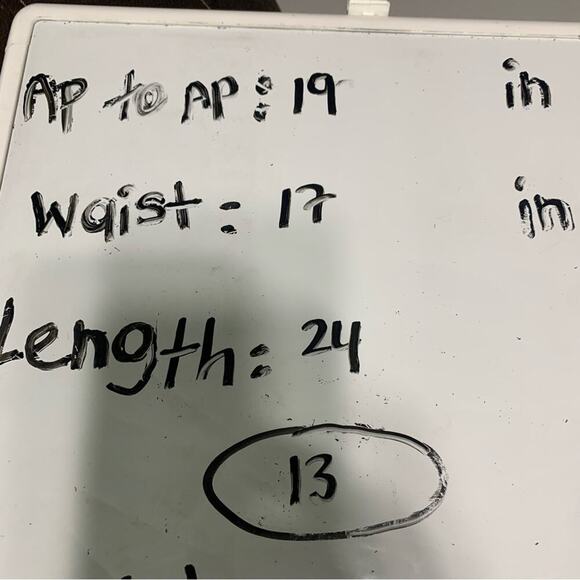 AP to AP: 19 in
Waist: 17 in
Length: 24
13